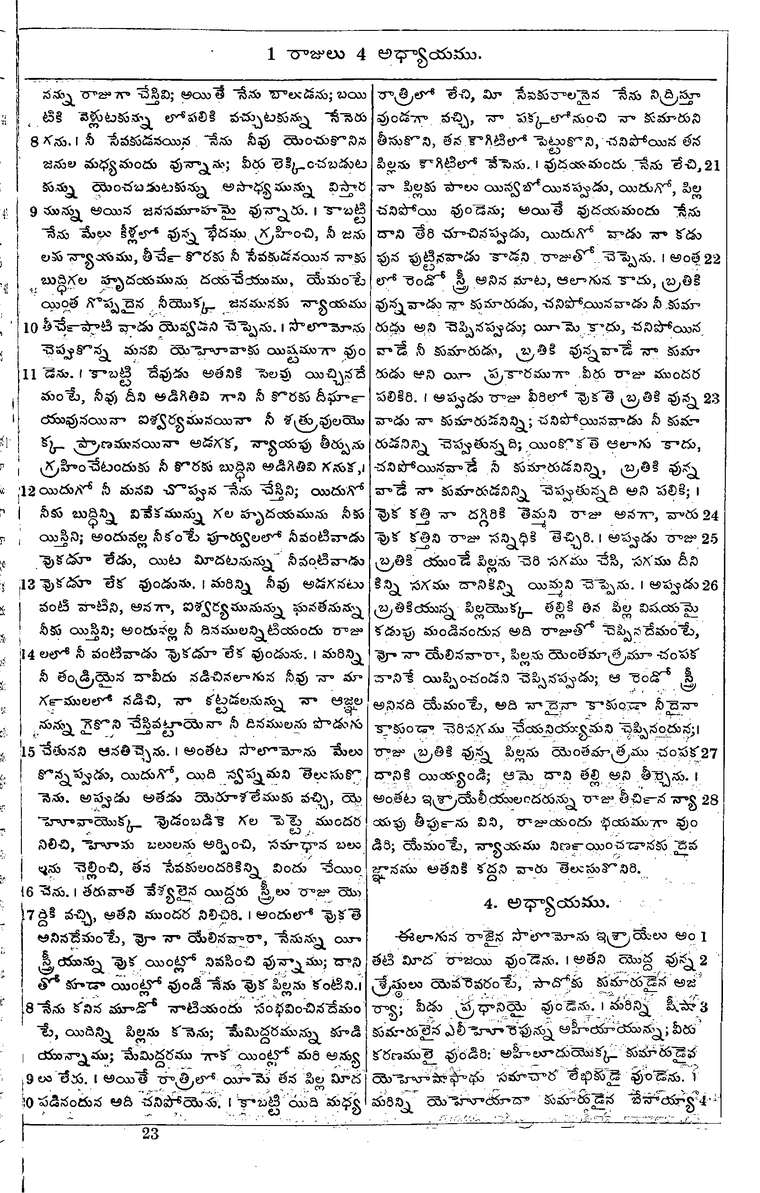 1 రాజులు 4 అధ్యాయము.
నన్ను రాజుగా చేస్తివి; అయితే నేను బాలుడను; బయి
టికి వెళ్లుటకున్ను లోపలికి వచ్చుటకున్ను నేనెరు
8 గను. । నీ సేవకుడనయిన నేను నీవు యెంచుకొనిన
జనుల మధ్యమందు వున్నాను; వీరు లెక్కించబడుట
కున్ను యెంచబడుటకున్ను అసాధ్యమున్ను విస్తార
9 మున్ను అయిన జనసమూహమై వున్నారు. । కాబట్టి
నేను మేలు కీళ్లలో వున్న భేదము గ్రహించి, నీ జను
లకు న్యాయము, తీర్చే కొరకు నీ సేవకుడనయిన నాకు
బుద్ధిగల హృదయమును దయచేయుము, యేమంటే
యింత గొప్పదైన నీయొక్క జనమునకు న్యాయము
10 తీర్చేపాటి వాడు యెవ్వడని చెప్పెను. । సాలొమోను
చెప్పుకొన్న మనవి యెహోవాకు యిష్టముగా వుం
11 డెను. । కాబట్టి దేవుడు అతనికి సెలవు యిచ్చినదే
మంటే, నీవు దీని అడిగితివి గాని నీ కొరకు దీర్ఘా
యువునయినా ఐశ్వర్యమునయినా నీ శత్రువులయొ
క్క ప్రాణమునయినా అడగక, న్యాయపు తీర్పును
గ్రహించేటందుకు నీ కొరకు బుద్ధిని అడిగితివి గనుక,।
12 యిదుగో నీ మనవి చొప్పున నేను చేస్తిని; యిదుగో
నీకు బుద్ధిన్ని వివేకమున్ను గల హృదయమును నీకు
యిస్తిని; అందునల్ల నీకంటే పూర్వులలో నీవంటివాడు
వొకడూ లేడు, యిట మీదటనున్ను నీవంటివాడు
13 వొకడూ లేక వుండును. । మరిన్ని నీవు అడగనటు
వంటి వాటిని, అనగా, ఐశ్వర్యమునున్ను ఘనతనున్ను
నీకు యిస్తిని; అందునల్ల నీ దినములన్నిటియందు రాజు
14 లలో నీ వంటివాడు వొకడూ లేక వుండును. । మరిన్ని
నీ తండ్రియైన దావీదు నడచినలాగున నీవు నా మా
ర్గములలో నడిచి, నా కట్టడలనున్ను నా ఆజ్ఞల
నున్ను గైకొని చేస్తివట్టాయెనా నీ దినములను పొడుగు
15 చేతునని ఆనతిచ్చెను. । అంతట సాలొమోను మేలు
కొన్నప్పుడు, యిదుగో, యిది స్వప్నమని తెలుసుకొ
నెను. అప్పుడు అతడు యెరూశలేముకు వచ్చి, యె
హోవాయొక్క వుడంబడికె గల పెట్టె ముందర
నిలిచి, హోమ బలులను అర్పించి, సమాధాన బలు
లను చెల్లించి, తన సేవకులందరికిన్ని విందు చేయిం
6 చెను. । తరువాత వేశ్యలైన యిద్దరు స్త్రీలు రాజు యొ
17 ద్దికి వచ్చి, అతని ముందర నిలిచిరి. । అందులో వొకతె
అనినదేమంటే, వో నా యేలినవారా, నేనున్ను యీ
స్త్రీయున్ను వొక యింట్లో నివసించి వున్నాము; దాని
తో కూడా యింట్లో వుండి నేను వొక పిల్లను కంటిని.।
8 నేను కనిన మూడో నాటియందు సంభవించినదేమం
టే, యిదిన్ని పిల్లను కనెను; మేమిద్దరమున్ను కూడి
యున్నాము; మేమిద్దరము గాక యింట్లో మరి అన్యు
9 లు లేరు. । అయితే రాత్రిలో యీమె తన పిల్ల మీద
0 పడినందున అది చనిపోయెను. । కాబట్టి యిది మధ్య
రాత్రిలో లేచి, మీ సేవకురాలనైన నేను నిద్రిస్తూ
వుండగా వచ్చి, నా పక్కలోనుంచి నా కుమారుని
తీసుకొని, తన కాగిటిలో పెట్టుకొని, చనిపోయిన తన
పిల్లను కాగిటిలో వేసెను. । వుదయమందు నేను లేచి, 21
నా పిల్లకు పాలు యివ్వబోయినప్పుడు, యిదుగో, పిల్ల
చనిపోయి వుండెను; అయితే వుదయమందు నేను
దాని తేరి చూచినప్పుడు, యిదుగో వాడు నా కడు
పున పుట్టినవాడు కాడని రాజుతో చెప్పెను. । అంత 22
లో రెండో స్త్రీ అనిన మాట, ఆలాగున కాదు, బ్రతికి
వున్నవాడు నా కుమారుడు, చనిపోయినవాడు నీ కుమా
రుడు అని చెప్పినప్పుడు; యీమె కాదు, చనిపోయిన
వాడే నీ కుమారుడు, బ్రతికి వున్నవాడే నా కుమా
రుడు అని యీ ప్రకారముగా వీరు రాజు ముందర
పలికిరి. । అప్పుడు రాజు వీరిలో వొకతె బ్రతికి వున్న 23
వాడు నా కుమారుడనిన్ని; చనిపోయినవాడు నీ కుమా
రుడనిన్ని చెప్పుతున్నది; యింకొకతె ఆలాగు కాదు,
చనిపోయినవాడే నీ కుమారుడనిన్ని, బ్రతికి వున్న
వాడే నా కుమారుడనిన్ని చెప్పుతున్నది అని పలికి; ।
వొక కత్తి నా దగ్గిరికి తెమ్మని రాజు అనగా, వారు 24
వొక కత్తిని రాజు సన్నిధికి తెచ్చిరి. । అప్పుడు రాజు 25
బ్రతికి యుండే పిల్లను చెరి సగము చేసి, సగము దీని
కిన్ని సగము దానికిన్ని యిమ్మని చెప్పెను. । అప్పుడు 26
బ్రతికియున్న పిల్లయొక్క తల్లికి తన పిల్ల విషయమై
కడుపు మండినందున అది రాజుతో చెప్పినదేమంటే,
వో నా యేలినవారా, పిల్లను యెంతమాత్రమూ చంపక
దానికే యిప్పించండని చెప్పినప్పుడు; ఆ రెండో స్త్రీ
అనినది యేమంటే, అది నాదైనా కాకుండా నీదైనా
కాకుండా చెరిసగము చేయనియ్యుమని చెప్పినందున;।
రాజు బ్రతికి వున్న పిల్లను యెంతమాత్రము చంపక 27
దానికి యియ్యండి; ఆమె దాని తల్లి అని తీర్చెను. ।
అంతట ఇశ్రాయేలీయులందరున్ను రాజు తీర్చిన న్యా 28
యపు తీర్పును విని, రాజుయందు భయముగా వుం
డిరి; యేమంటే, న్యాయము నిర్ణయించడానకు దైవ
జ్ఞానము అతనికి కద్దని వారు తెలుసుకొనిరి.
4. అధ్యాయము.
ఈలాగున రాజైన సాలొమోను ఇశ్రాయేలు అం 1
తటి మీద రాజయి వుండెను. । అతని యొద్ద వున్న 2
శ్రేష్ఠులు యెవరెవరంటే, సాదోకు కుమారుడైన అజ
ర్యా; వీడు ప్రధానియై వుండెను. । మరిన్ని షీషా 3
కుమారులైన ఎలీహోరెఫున్ను అహీయాయున్ను; వీరు
కరణములై వుండిరి; అహీలూదుయొక్క కుమారుడైన
యెహోషాఫాథు సమాచార లేఖకుడై వుండెను. ।
మరిన్ని యెహోయాదా కుమారుడైన బేనాయ్యా 4
23